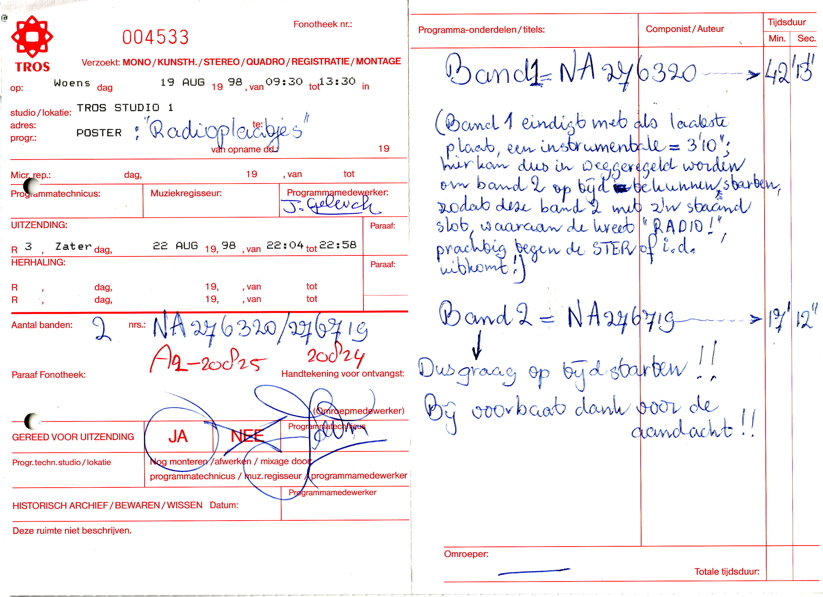 @
TROS
004533
Fonotheek nr.:
Verzoekt: MONO / KUNSTH. / STEREO / QUADRO / REGISTRATIE / MONTAGE
op: Woens dag 19 AUG 19 98 , van 09:30 tot 13:30 in
studio / lokatie: TROS STUDIO 1
adres: te:
progr.: POSTER : "Radioplaatjes"
van opname dd. 19
Micr. rep.: dag, 19 , van tot
Programmatechnicus: Muziekregisseur: Programmamedewerker:
UITZENDING: Paraaf:
R 3 , Zater dag, 22 AUG 19, 98 , van 22:04 tot 22:58
HERHALING: Paraaf:
R , dag, 19, , van tot
R , dag, 19, , van tot
Aantal banden: 2 nrs.: NA 276320/276719
A2-200825 200824
Paraaf Fonotheek: Handtekening voor ontvangst:
(Omroepmedewerker)
GEREED VOOR UITZENDING JA NEE Programmatechnicus
Progr.techn.studio / lokatie Nog monteren / afwerken / mixage door
programmatechnicus / muz.regisseur / programmamedewerker
Programmamedewerker
HISTORISCH ARCHIEF / BEWAREN / WISSEN Datum:
Deze ruimte niet beschrijven.
Programma-onderdelen / titels: Componist / Auteur Tijdsduur
Min. Sec.
Band 1 = NA 276320 42' 13"
(Band 1 eindigt met als laatste
plaat, een instrumentale = 3'10";
hier kan dus in weggeregeld worden
om band 2 op tijd te kunnen starten,
zodat deze band 2 met z'n staand
slot, waaraan de kreet "RADIO!",
prachtig tegen de STER of i.d.
uitkomt!)
Band 2 = NA 276719 17' 12"
Dus graag op tijd starten !!
Bij voorbaat dank voor de
aandacht!!
Omroeper:
Totale tijdsduur: